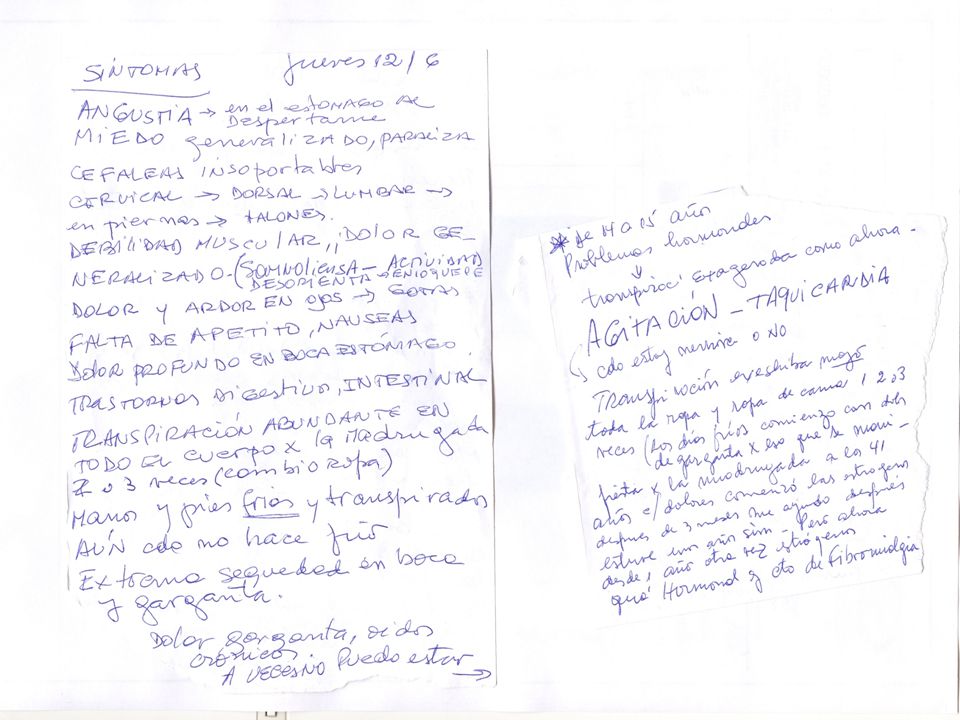 SINTOMAS Jueves 12/6
ANGUSTIA → en el estomago al
Despertarme
MIEDO generalizado, paraliza
CEFALEAS insoportables
CERVICAL → DORSAL → LUMBAR →
en piernas → TALONES.
DEBILIDAD MUSCULAR, DOLOR GE-
NERALIZADO - (SOMNOLIENSA - ACTIVIDAD
DESORIENTA → ENLOQUECE
DOLOR y ARDOR EN OJOS → GOTAS
FALTA DE APETITO, NAUSEAS
DOLOR PROFUNDO EN BOCA ESTÓMAGO.
TRASTORNOS DIGESTIVO, INTESTINAL
TRANSPIRACIÓN ABUNDANTE EN
TODO EL CUERPO x la Madrugada
2 o 3 veces (cambio ropa)
Manos y pies frios y transpirados
AÚN cdo no hace frío
Extrema sequedad en boca
y garganta.
Dolor garganta, oidos
crónicos.
A veces no Puedo estar →
* de 14 a 15 años
Problemas hormonales
↓
transpirac. exagerada como ahora -
AGITACIÓN - TAQUICARDIA
cdo estoy nerviosa o no
Transpiración
toda la ropa y ropa de cama 1 2 o 3
veces (Los días fríos comienzo con dolor
de garganta x eso que se mani-
fiesta x la madrugada a los 41
años c/ dolores comenzó las estrogenos
despues de 3 meses me ayudó después
estuve un año sin - Pero ahora
desde 1 año otra vez estrógenos
Hormonal y cto de Fibromialgia